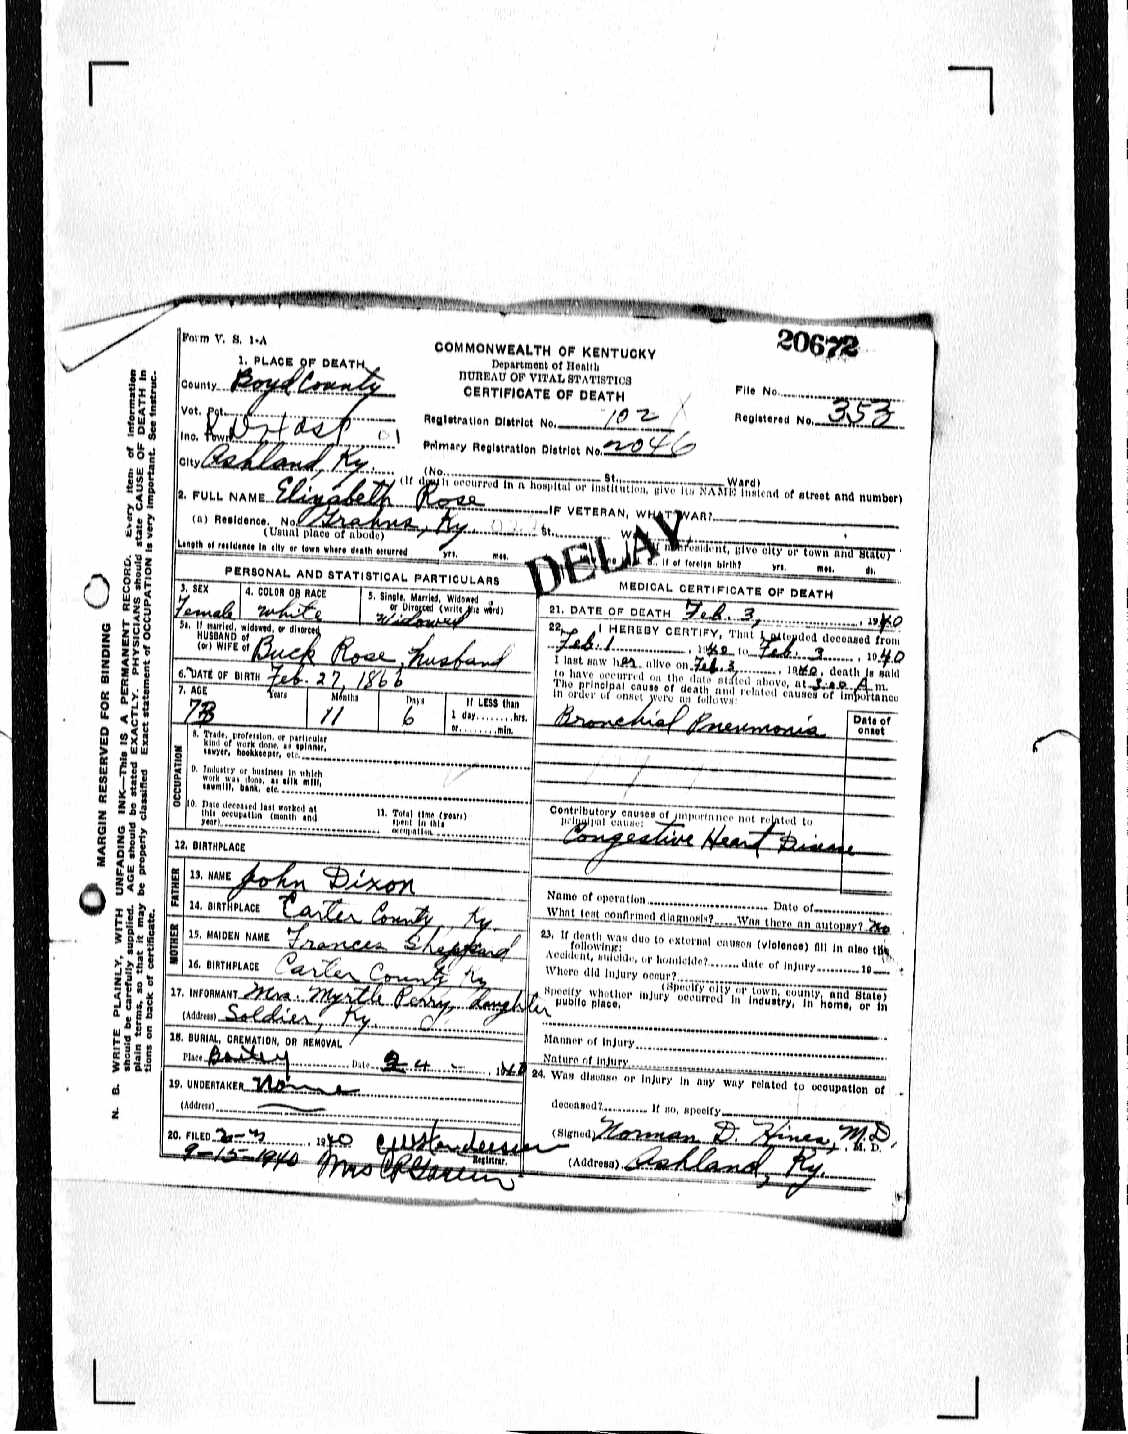 20672
Form V. S. 1-A
COMMONWEALTH OF KENTUCKY
Department of Health
BUREAU OF VITAL STATISTICS
CERTIFICATE OF DEATH
File No.
Registered No. 353
1. PLACE OF DEATH
County Boyd County
Vot. Pct.
Inc. Town
City Ashland, Ky.
Registration District No. 102
Primary Registration District No. 2046
(No. St. Ward)
(If death occurred in a hospital or institution, give its NAME instead of street and number)
2. FULL NAME Elizabeth Rose
IF VETERAN, WHAT WAR?
(a) Residence. No. Grahns, Ky St.
(Usual place of abode)
nonresident, give city or town and State)
Length of residence in city or town where death occurred yrs. mos.
S., if of foreign birth? yrs. mos. ds.
DELAY
PERSONAL AND STATISTICAL PARTICULARS
3. SEX
Female
4. COLOR OR RACE
White
5. Single, Married, Widowed
or Divorced (write the word)
Widowed
5a. If married, widowed, or divorced
HUSBAND of
(or) WIFE of Buck Rose, husband
6. DATE OF BIRTH Feb. 27, 1866
7. AGE Years Months Days If LESS than
73 11 6 1 day........hrs.
or........min.
OCCUPATION
8. Trade, profession, or particular
kind of work done, as spinner,
sawyer, bookkeeper, etc.
9. Industry or business in which
work was done, as silk mill,
sawmill, bank, etc.
10. Date deceased last worked at
this occupation (month and
year)
11. Total time (years)
spent in this
occupation
12. BIRTHPLACE
FATHER
13. NAME John Dixon
14. BIRTHPLACE Carter County, Ky.
MOTHER
15. MAIDEN NAME Frances Sheppard
16. BIRTHPLACE Carter County, Ky
17. INFORMANT Mrs. Myrtle Perry, daughter
(Address) Soldier, Ky.
18. BURIAL, CREMATION, OR REMOVAL
Place Bailey Date 2 4 - , 1940
19. UNDERTAKER None
(Address)
20. FILED , 1940
Registrar.
9-15-1940 Mrs
MEDICAL CERTIFICATE OF DEATH
21. DATE OF DEATH Feb. 3, , 1940
22. I HEREBY CERTIFY, That I attended deceased from
Feb. 1 , 1940 to Feb. 3 , 1940
I last saw her alive on Feb. 3 , 1940, death is said
to have occurred on the date stated above, at 3:00 A m.
The principal cause of death and related causes of importance
in order of onset were as follows:
Date of
onset
Bronchial Pneumonia
Contributory causes of importance not related to
principal cause:
Congestive Heart Disease
Name of operation Date of
What test confirmed diagnosis? Was there an autopsy? No
23. If death was due to external causes (violence) fill in also the
following:
Accident, suicide, or homicide? date of injury 19
Where did injury occur?
(Specify city or town, county, and State)
Specify whether injury occurred in industry, in home, or in
public place.
Manner of injury
Nature of injury
24. Was disease or injury in any way related to occupation of
deceased? If so, specify
(Signed) Norman D. Hines, M.D. , M. D.
(Address) Ashland, Ky.
MARGIN RESERVED FOR BINDING
N. B. WRITE PLAINLY, WITH UNFADING INK—This IS A PERMANENT RECORD. Every item of information
should be carefully supplied. AGE should be stated EXACTLY. PHYSICIANS should state CAUSE OF DEATH in
plain terms, so that it may be properly classified. Exact statement of OCCUPATION is very important. See instruc-
tions on back of certificate.